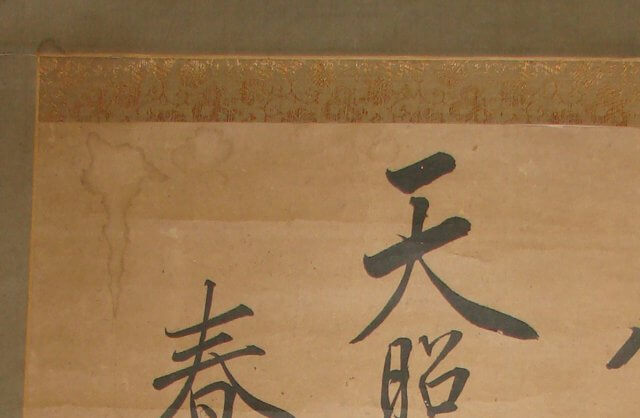 天照
春